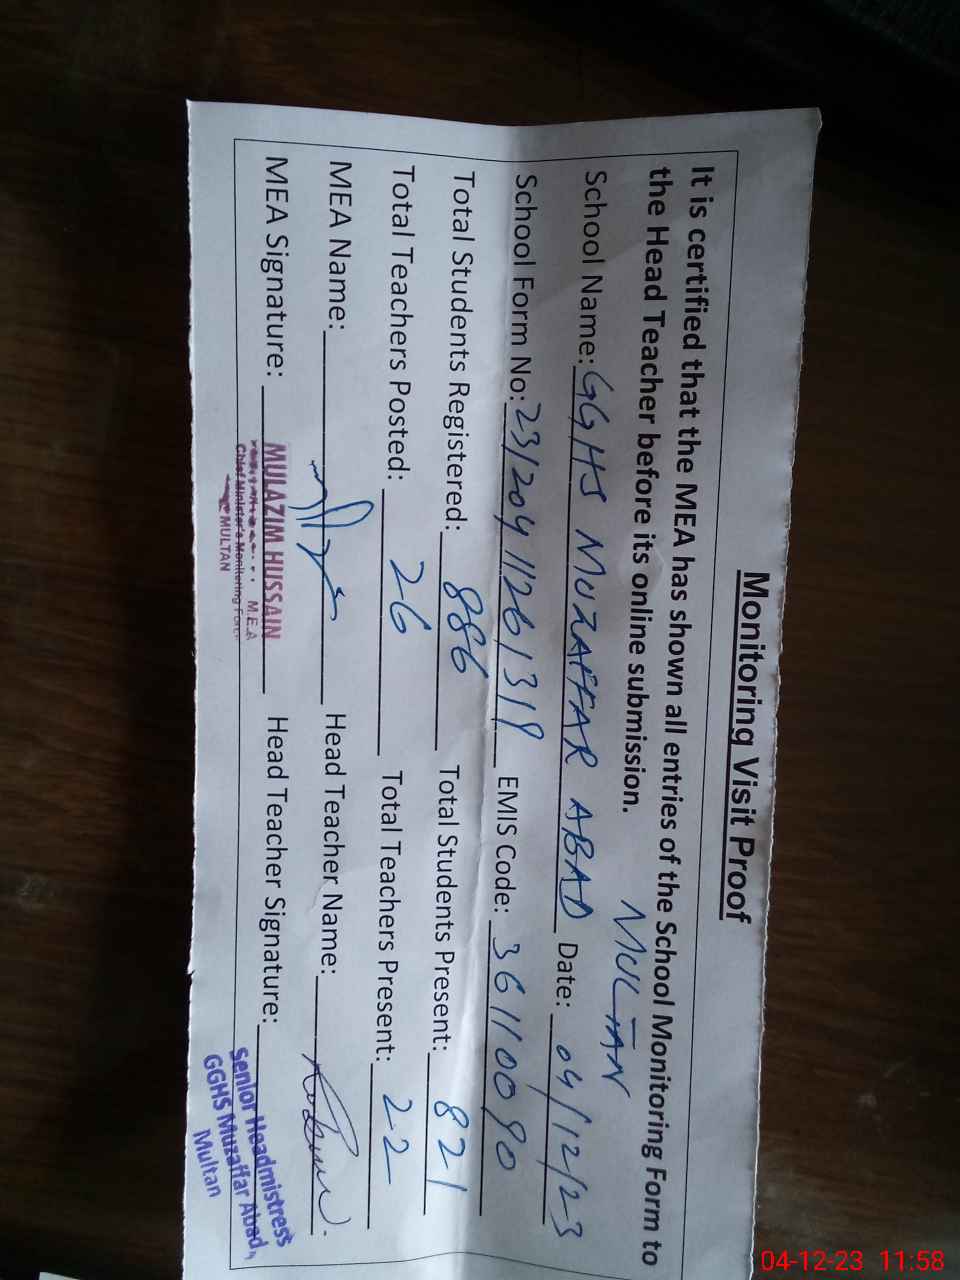 Monitoring Visit Proof
It is certified that the MEA has shown all entries of the School Monitoring Form to
the Head Teacher before its online submission.
MULTAN
School Name: GGHS MUZAFFAR ABAD Date: 04/12/23
School Form No: 23/2041126/318 EMIS Code: 36110090
Total Students Registered: 886 Total Students Present: 821
Total Teachers Posted: 26 Total Teachers Present: 22
MEA Name: Head Teacher Name:
MEA Signature: MULAZIM HUSSAIN Head Teacher Signature:
M.E.A
Chief Minister's Monitoring Force
MULTAN
Senior Headmistress
GGHS Muzaffar Abad,
Multan
04-12-23 11:58